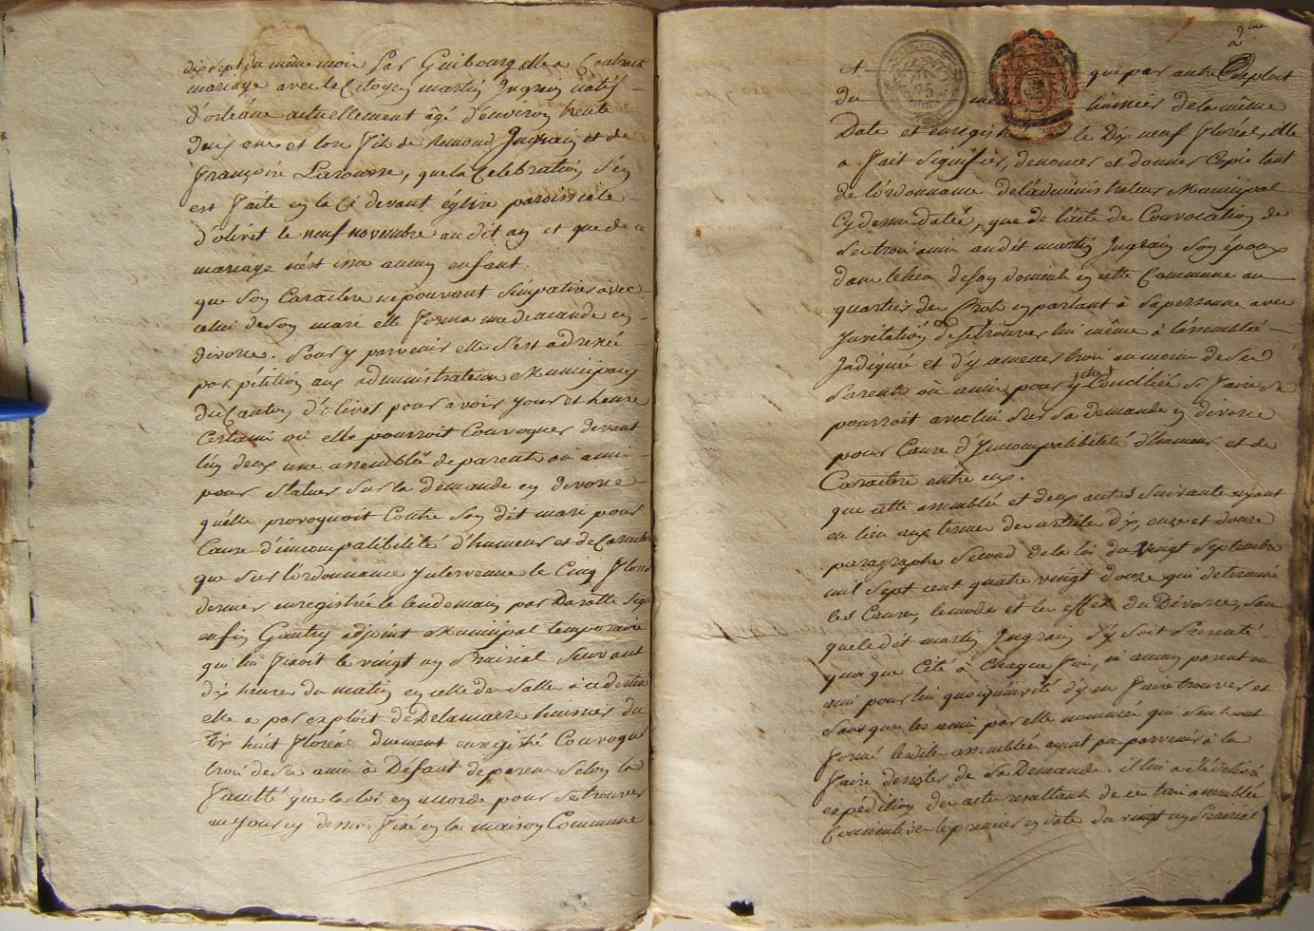 dix sept du même mois par Guibourg elle a Contracté
mariage avec le Citoyen martin Ingrain natif
d'orléans actuellement âgé d'environ trente
deux ans et lors fils de Remond Ingrain et de
françoise Larousse, que la Celebration s'en
est faite en la Ci devant églize paroissiale
d'olivet le neuf novembre audit an et que de ce
mariage n'est issu aucun enfant.
que son Caractere ne pouvant simpatiser avec
celui de son mari elle forma une demande en
divorce. Pour y parvenir elle s'est adressée
par pétition aux administrateurs Municipaux
du Canton d'olivet pour avoir jour et heure
Certains où elle pourroit Convoquer devant
l'un deux une assemblée de parents ou amis
pour statuer sur la demande en divorce
quelle provoquoit Contre son dit mari pour
Cause d'incompatibilité d'humeur et de Caractere
que sur l'ordonnance intervenue le Cinq floréal
dernier enregistrée le lendemain par
Gautry adjoint Municipal temporaire
qui lui fixoit le vingt un Prairial suivant
dix heures du matin en celle de salle à ce destinée
elle a par exploit de Delamare huissier du
dix huit floréal duement enregistré Convoqué
trois de ses amis à Défaut de parens selon la
faculté que la loi en accorde pour se trouver
aux jour cy dessus fixé en la maison Commune
2me
à
et que par autre Exploit
du même huissier de la même
Date et enregistré le Dix neuf floréal, elle
a fait signifier, denoncer et donner Copie tant
de l'ordonnance de l'administrateur Municipal
cy dessus datée, que de l'acte de Convocation de
ses trois amis audit martin Ingrain son époux
dans le lieu de son domicile en cette Commune au
quartier du en parlant à sa personne avec
Invitation de se trouver lui même à l'assemblée
Indiquée et d'y amener trois au moins de ses
Parents ou amis pour y être Concilié si faire se
pourroit avec lui sur sa demande en divorce
pour Cause d'Incompatibilité d'humeur et de
Caractere entre eux.
que cette assemblée et deux autres suivantes ayant
eu lieu aux termes des articles dix, onze et douze
paragraphe second de la loi du vingt septembre
mil sept cent quatre vingt douze qui determine
les Causes, le mode et les effets du Divorce, sans
que le dit martin Ingrain s'y soit Présenté
quoique Cité à Chaque fois, ni aucun parent ou
ami pour lui quoiqu'invité d'y en faire trouver et
sans que les amis par elle nommés qui seuls ont
formé les dites assemblées ayent pu parvenir à la
faire desister de sa Demande. il lui a été délivré
expédition des actes resultant de ces trois assemblées
Consécutives le premier en date du vingt un Prairial